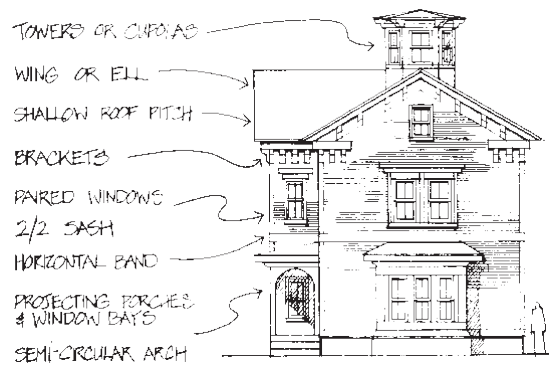 TOWERS OR CUPOLAS
WING OR ELL
SHALLOW ROOF PITCH
BRACKETS
PAIRED WINDOWS
2/2 SASH
HORIZONTAL BAND
PROJECTING PORCHES
& WINDOW BAYS
SEMI-CIRCULAR ARCH